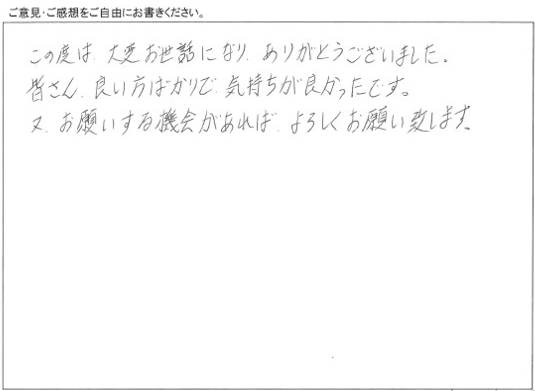 ご意見・ご感想をご自由にお書きください。
この度は、大変お世話になり、ありがとうございました。
皆さん、良い方ばかりで、気持ちが良かったです。
又、お願いする機会があれば、よろしくお願い致します。